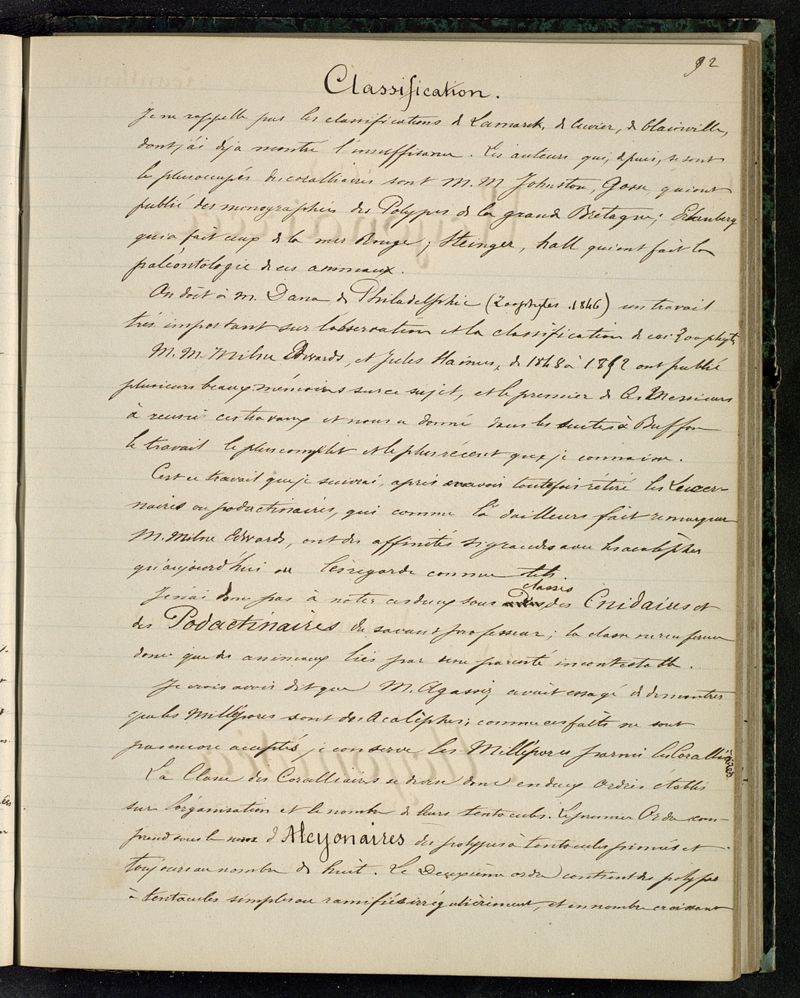 92
Classification.
Je ne rappelle pas les classifications de Lamarck, de Cuvier, de Blainville,
dont j'ai déja montré l'insuffisance. Les auteurs qui, depuis, se sont
le plus occupés des coralliaires sont M.M Johnston, Gosse, qui ont
publié des monographies des Polypes de la grande Bretagne; Erhenberg
qui a fait ceux de la mer Rouge; Steinger, hall qui ont fait la
paléontologie de ces animaux.
On doit à M. Dana de Philadelphie (Zoophytes. 1846) un travail
très important sur l'observation et la classification de ces Zoophytes
M.M. Milne Edwards, et Jules Haime, de 1848 à 1852 ont publié
plusieurs beaux mémoires sur ce sujet, et le premier de ces Messieurs
à réuni ces travaux et nous a donné dans les suites à Buffon
le travail le plus complèt et le plus récent que je connaisse.
C'est ce travail que je suivrai, après en avoir toutefois rétiré les Lucer-
naires ou podactinaires, qui comme l'à dailleurs fait remarquer
M. Milne Edwards, ont des affinités si grandes avec les acalèphes
qu'aujourd'hui on les regarde comme tels.
Je n'ai donc pas à noter ces deux sous classes des Cnidaires et
des Podactinaires du savant professeur; la classe ne renferme
donc que des animaux liés par une parenté incontestable.
Je crois avoir dit que M. Agassiz avait essayé de démontrer
que les Millépores sont des Acalèphes; comme ces faits ne sont
pas encore acceptés je conserve les Millépores parmi les Coralliaires
La Classe des Coralliaires se divise donc en deux ordres établis
sur l'organisation et le nombre de leurs tentacules. Le premier Ordre com-
prend sous le nom d'Alcyonaires des polypes à tentacules pinnés et
toujours au nombre de huit. Le Deuxième ordre contient des polypes
à tentacules simples ou ramifiés irrégulièrement, et en nombre croissant